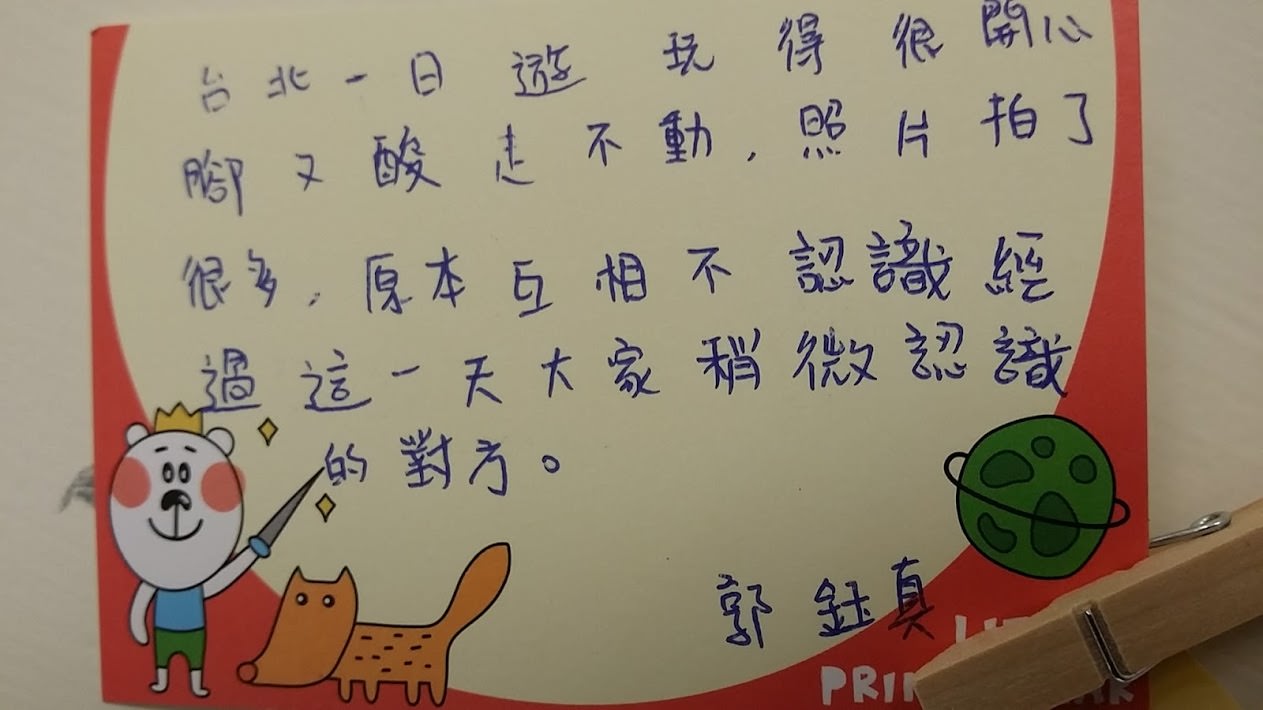 台北一日遊玩得很開心
腳又酸走不動,照片拍了
很多,原本互相不認識經
過這一天大家稍微認識
的對方。
郭鈺真